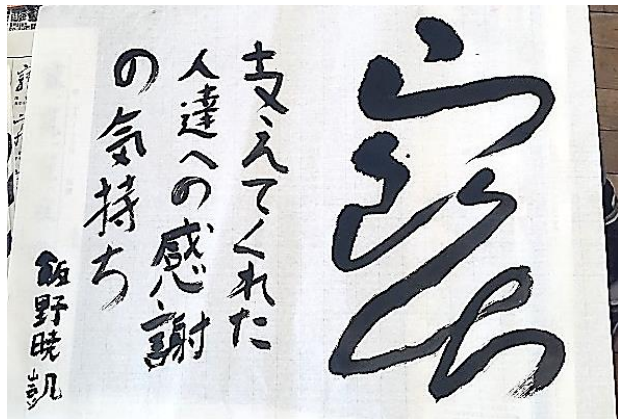 支えてくれた
人達への感謝
の気持ち
飯野暁凱